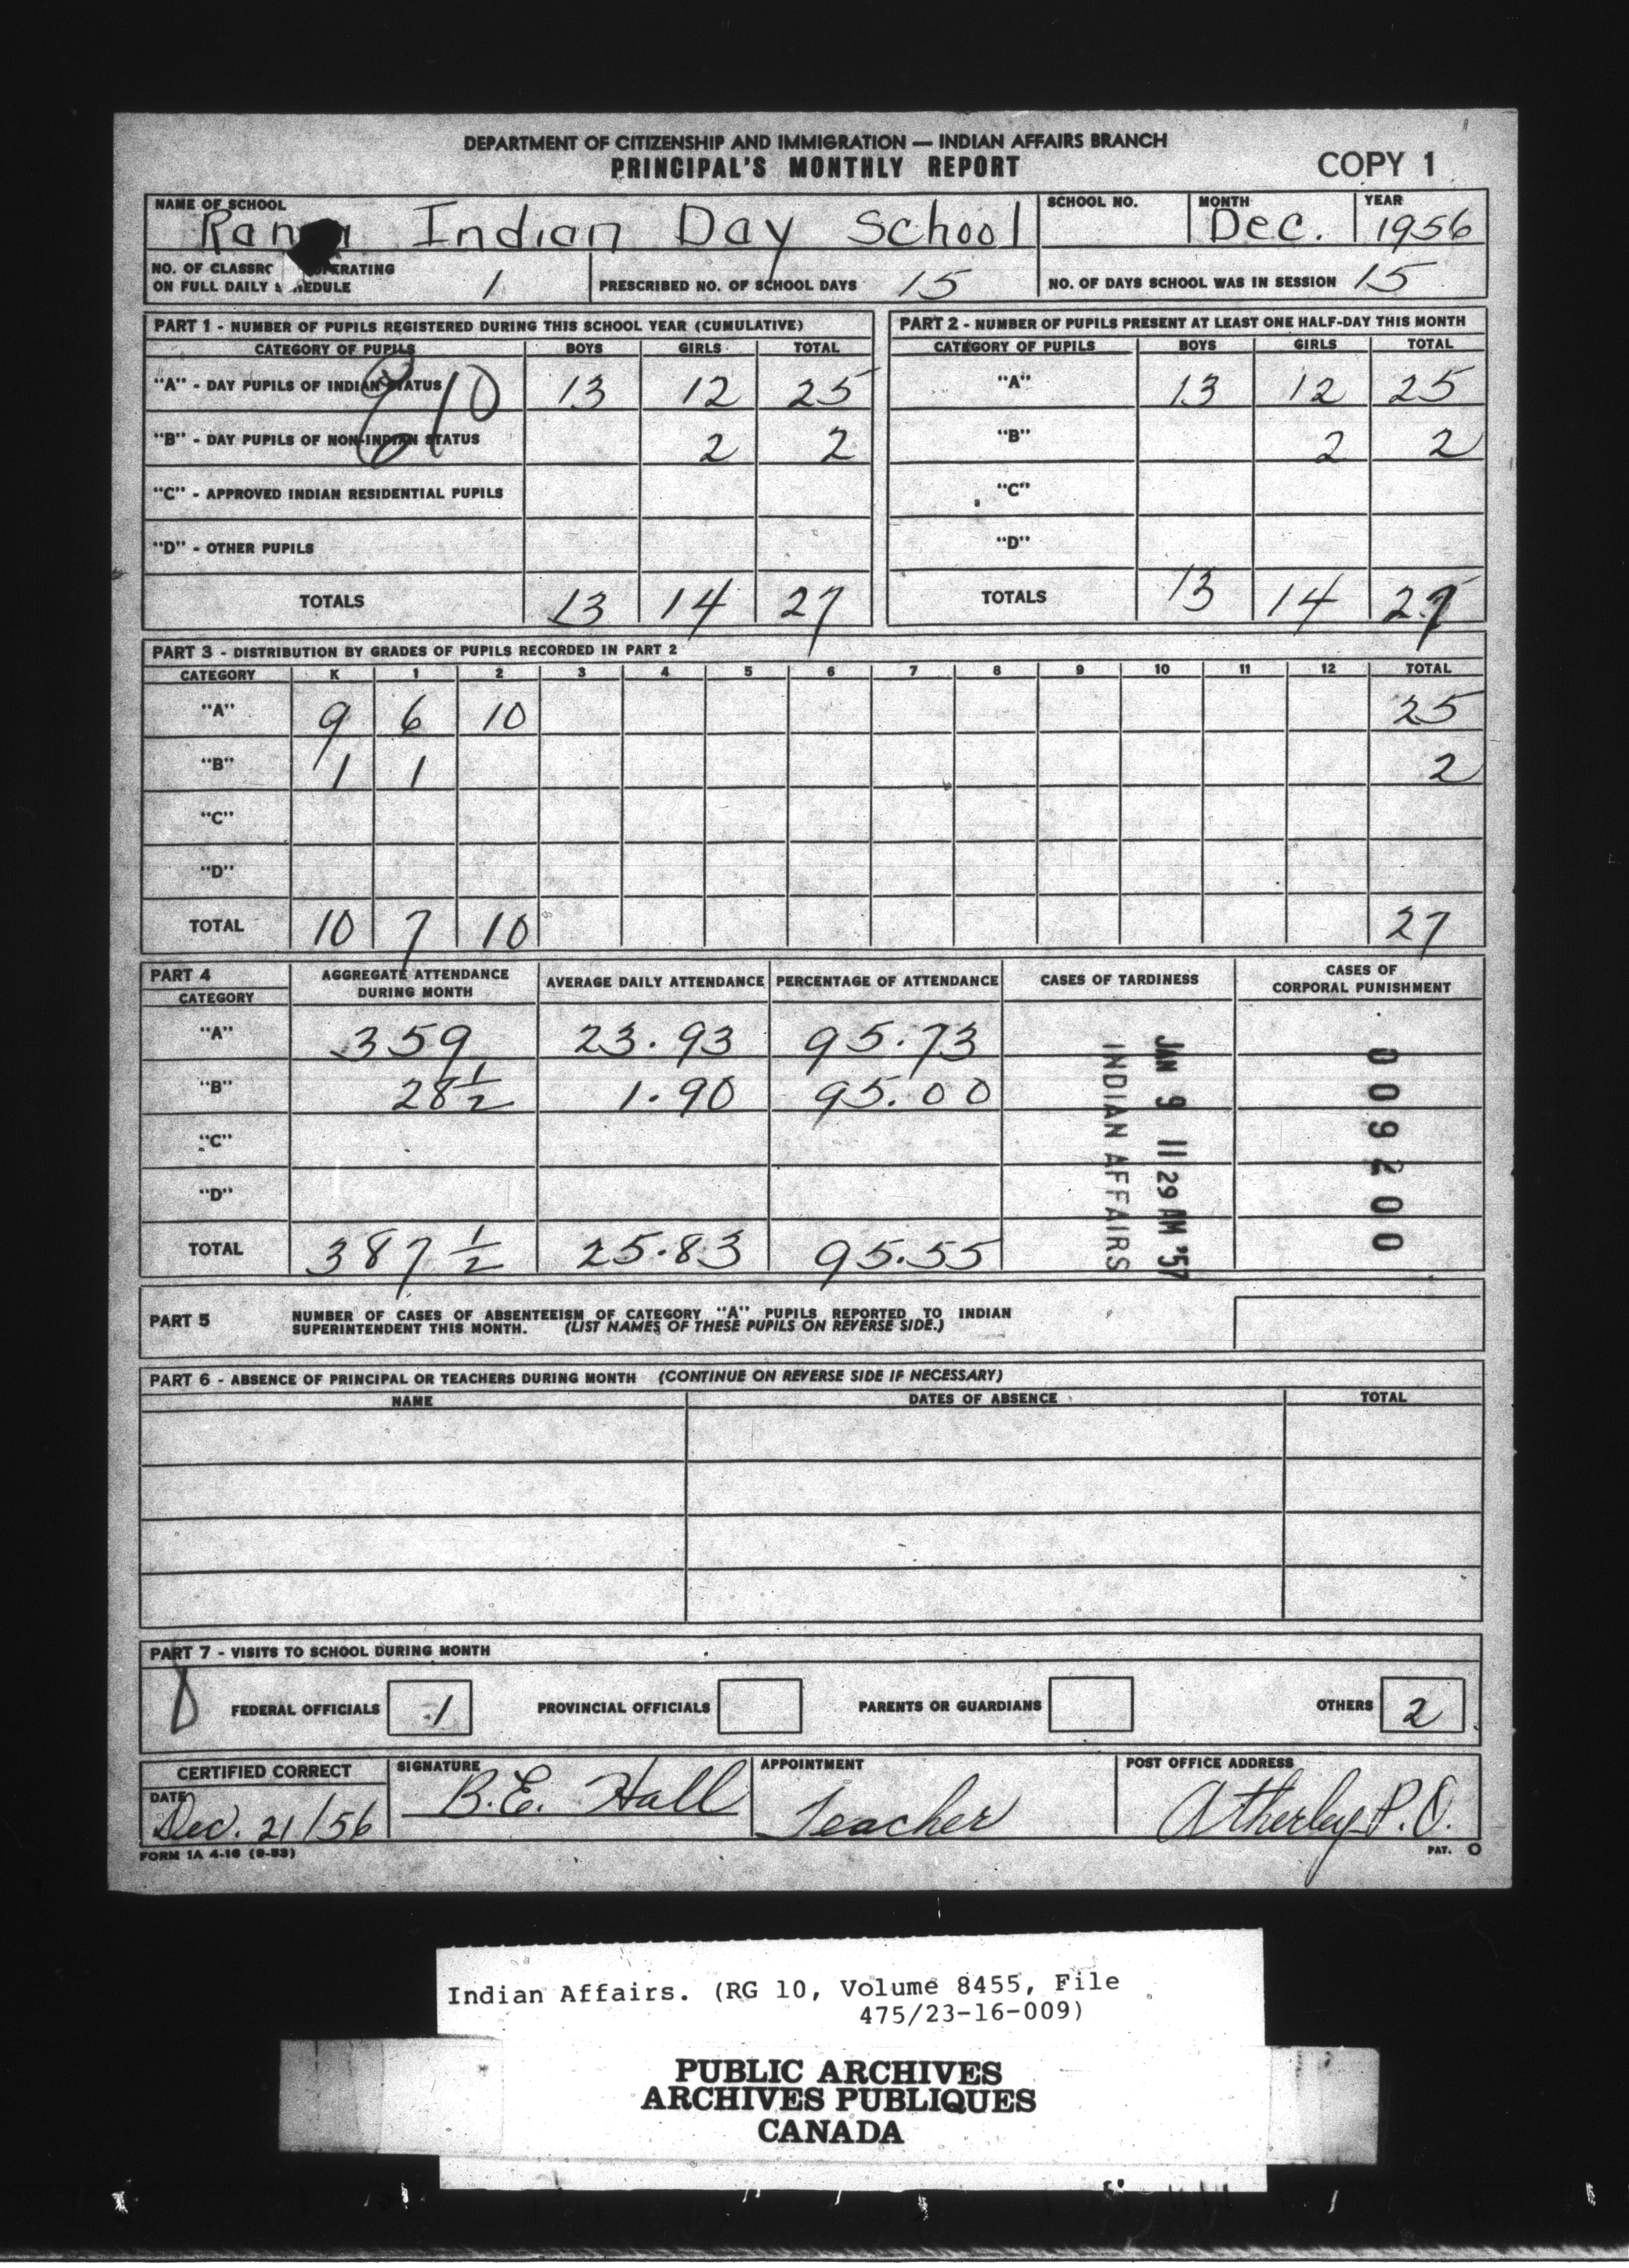 DEPARTMENT OF CITIZENSHIP AND IMMIGRATION — INDIAN AFFAIRS BRANCH
PRINCIPAL'S MONTHLY REPORT
COPY 1
NAME OF SCHOOL
Indian Day School
SCHOOL NO.
MONTH
Dec.
YEAR
1956
NO. OF OPERATING
ON FULL DAILY
1
PRESCRIBED NO. OF SCHOOL DAYS 15
NO. OF DAYS SCHOOL WAS IN SESSION 15
PART 1 - NUMBER OF PUPILS REGISTERED DURING THIS SCHOOL YEAR (CUMULATIVE)
CATEGORY OF PUPILS BOYS GIRLS TOTAL
"A" - DAY PUPILS OF INDIAN STATUS 13 12 25
10
"B" - DAY PUPILS OF NON-INDIAN STATUS 2 2
"C" - APPROVED INDIAN RESIDENTIAL PUPILS
"D" - OTHER PUPILS
TOTALS 13 14 27
PART 2 - NUMBER OF PUPILS PRESENT AT LEAST ONE HALF-DAY THIS MONTH
CATEGORY OF PUPILS BOYS GIRLS TOTAL
"A" 13 12 25
"B" 2 2
"C"
"D"
TOTALS 13 14 27
PART 3 - DISTRIBUTION BY GRADES OF PUPILS RECORDED IN PART 2
CATEGORY K 1 2 3 4 5 6 7 8 9 10 11 12 TOTAL
"A" 9 6 10 25
"B" 1 1 2
"C"
"D"
TOTAL 10 7 10 27
PART 4
CATEGORY
AGGREGATE ATTENDANCE
DURING MONTH
AVERAGE DAILY ATTENDANCE
PERCENTAGE OF ATTENDANCE
CASES OF TARDINESS
CASES OF
CORPORAL PUNISHMENT
"A" 359 23.93 95.73
"B" 28 1/2 1.90 95.00
"C"
"D"
TOTAL 387 1/2 25.83 95.55
JAN 9 11 29 AM '57
INDIAN AFFAIRS
009200
PART 5
NUMBER OF CASES OF ABSENTEEISM OF CATEGORY "A" PUPILS REPORTED TO INDIAN
SUPERINTENDENT THIS MONTH. (LIST NAMES OF THESE PUPILS ON REVERSE SIDE.)
PART 6 - ABSENCE OF PRINCIPAL OR TEACHERS DURING MONTH (CONTINUE ON REVERSE SIDE IF NECESSARY)
NAME DATES OF ABSENCE TOTAL
PART 7 - VISITS TO SCHOOL DURING MONTH
FEDERAL OFFICIALS 1 PROVINCIAL OFFICIALS PARENTS OR GUARDIANS OTHERS 2
CERTIFIED CORRECT
DATE
Dec. 21/56
SIGNATURE
B.E. Hall
APPOINTMENT
Teacher
POST OFFICE ADDRESS
Atherley P.O.
FORM 1A 4-16 (9-53)
PAT. O
Indian Affairs. (RG 10, Volume 8455, File
475/23-16-009)
PUBLIC ARCHIVES
ARCHIVES PUBLIQUES
CANADA